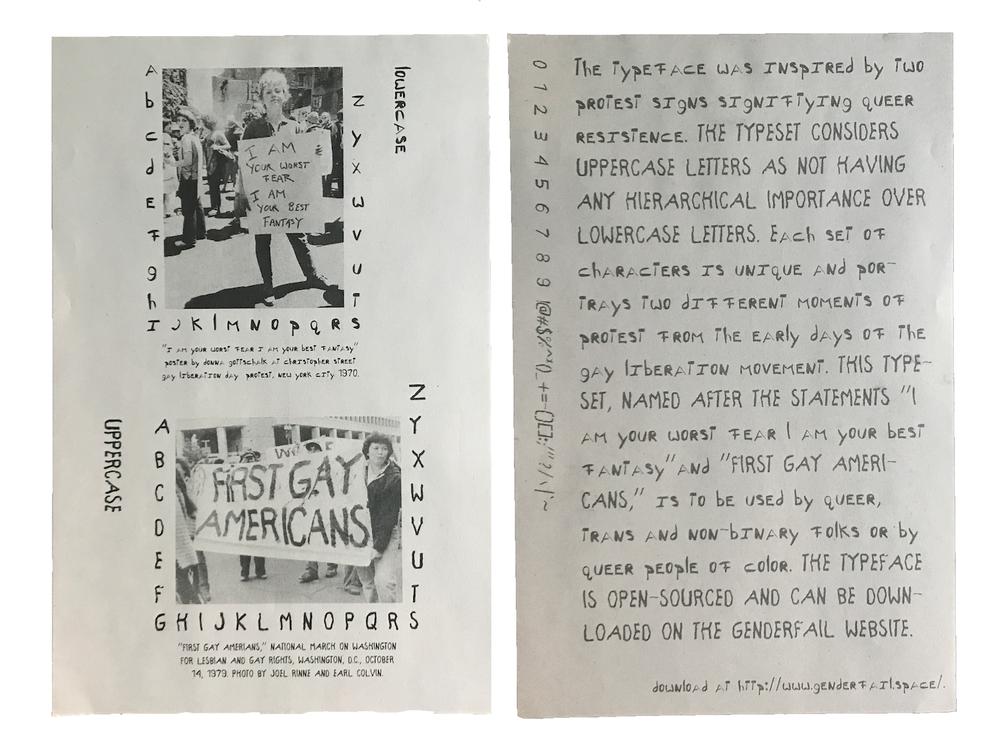 lOWERCASE
A
b
c
d
E
F
g
h
I J K l M N O p Q R S
T
U
V
W
X
Y
Z
I AM
YOUR WORST
FEAR
I AM
YOUR BEST
FANTASY
"I AM yOUR WORST FEAR I AM yOUR bEST FANTASy"
pOSTER by dONNA gOTTSchAlK AT chRISTOphER STREET
gAy lIbERATION dAy pROTEST, NEW yORK cITy 1970.
UPPERCASE
A
B
C
D
E
F
G H I J K L M N O P Q R S
T
U
V
W
X
Y
Z
FIRST GAY
AMERICANS
"FIRST GAY AMERIANS," NATIONAL MARCH ON WASHINGTON
FOR LESBIAN AND GAY RIGHTS, WASHINGTON, D.C., OCTOBER
14, 1979. PHOTO BY JOEL RINNE AND EARL COLVIN.
0 1 2 3 4 5 6 7 8 9 !@#$%^*()_+=-{}[]:;"'?/\|~
ThE TypEFACE WAS INSpIREd by TWO
pROTEST SIgNS SIgNIFIyINg QUEER
RESISTENCE. THE TYPESET CONSIDERS
UPPERCASE LETTERS AS NOT HAVING
ANY HIERARCHICAL IMPORTANCE OVER
LOWERCASE LETTERS. EAch SET OF
chARAcTERS IS UNIQUE ANd pOR-
TRAyS TWO dIFFERENT MOMENTS OF
pROTEST FROM ThE EARly dAyS OF ThE
gAy lIbERATION MOVEMENT. THIS TYPE-
SET, NAMED AFTER THE STATEMENTS "I
AM yOUR WORST FEAR I AM yOUR bEST
FANTASy" ANd "FIRST GAY AMERI-
CANS," IS TO bE USEd by QUEER,
TRANS ANd NON-bINARy FOlKS OR by
QUEER pEOplE OF cOlOR. THE TYPEFACE
IS OPEN-SOURCED AND CAN BE DOWN-
LOADED ON THE GENDERFAIL WEBSITE.
dOWNlOAd AT hTTp://WWW.gENdERFAIl.SpAcE/.